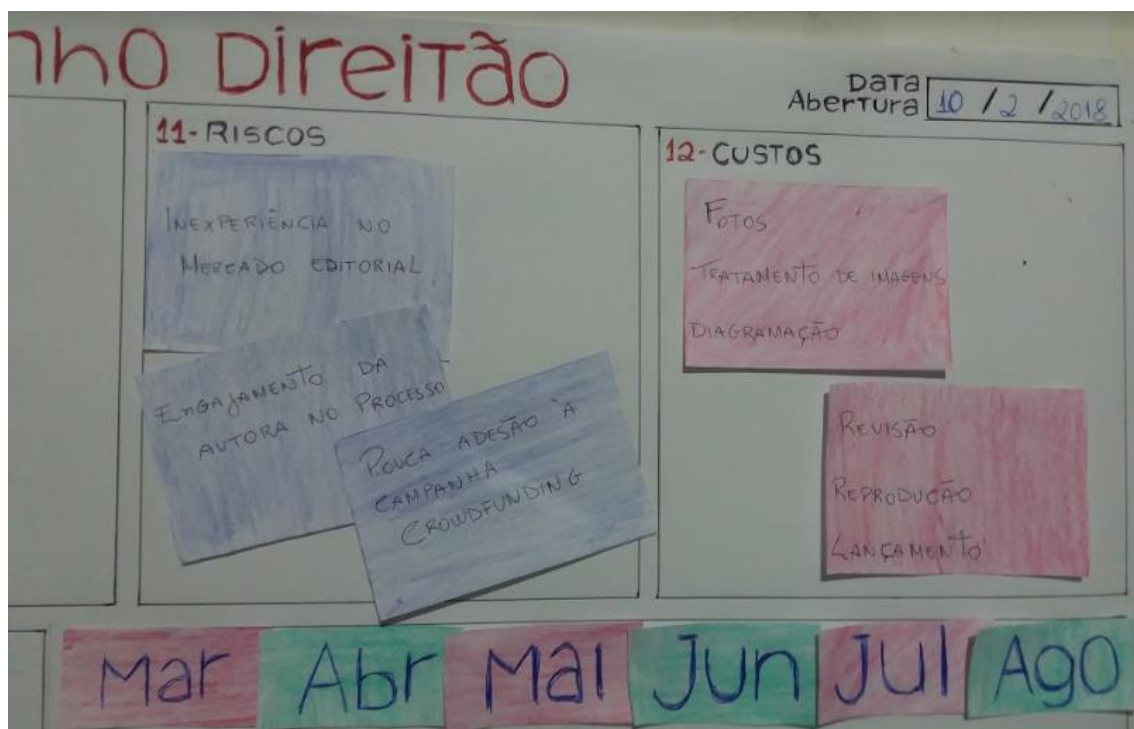 nho Direitão
Data
Abertura 10 / 2 / 2018
11- Riscos
Inexperiência no
Mercado editorial
Engajamento da
autora no processo
Pouca adesão à
campanha
crowdfunding
12- Custos
Fotos
Tratamento de imagens
Diagramação
Revisão
Reprodução
Lançamento
Mar Abr Mai Jun Jul Ago